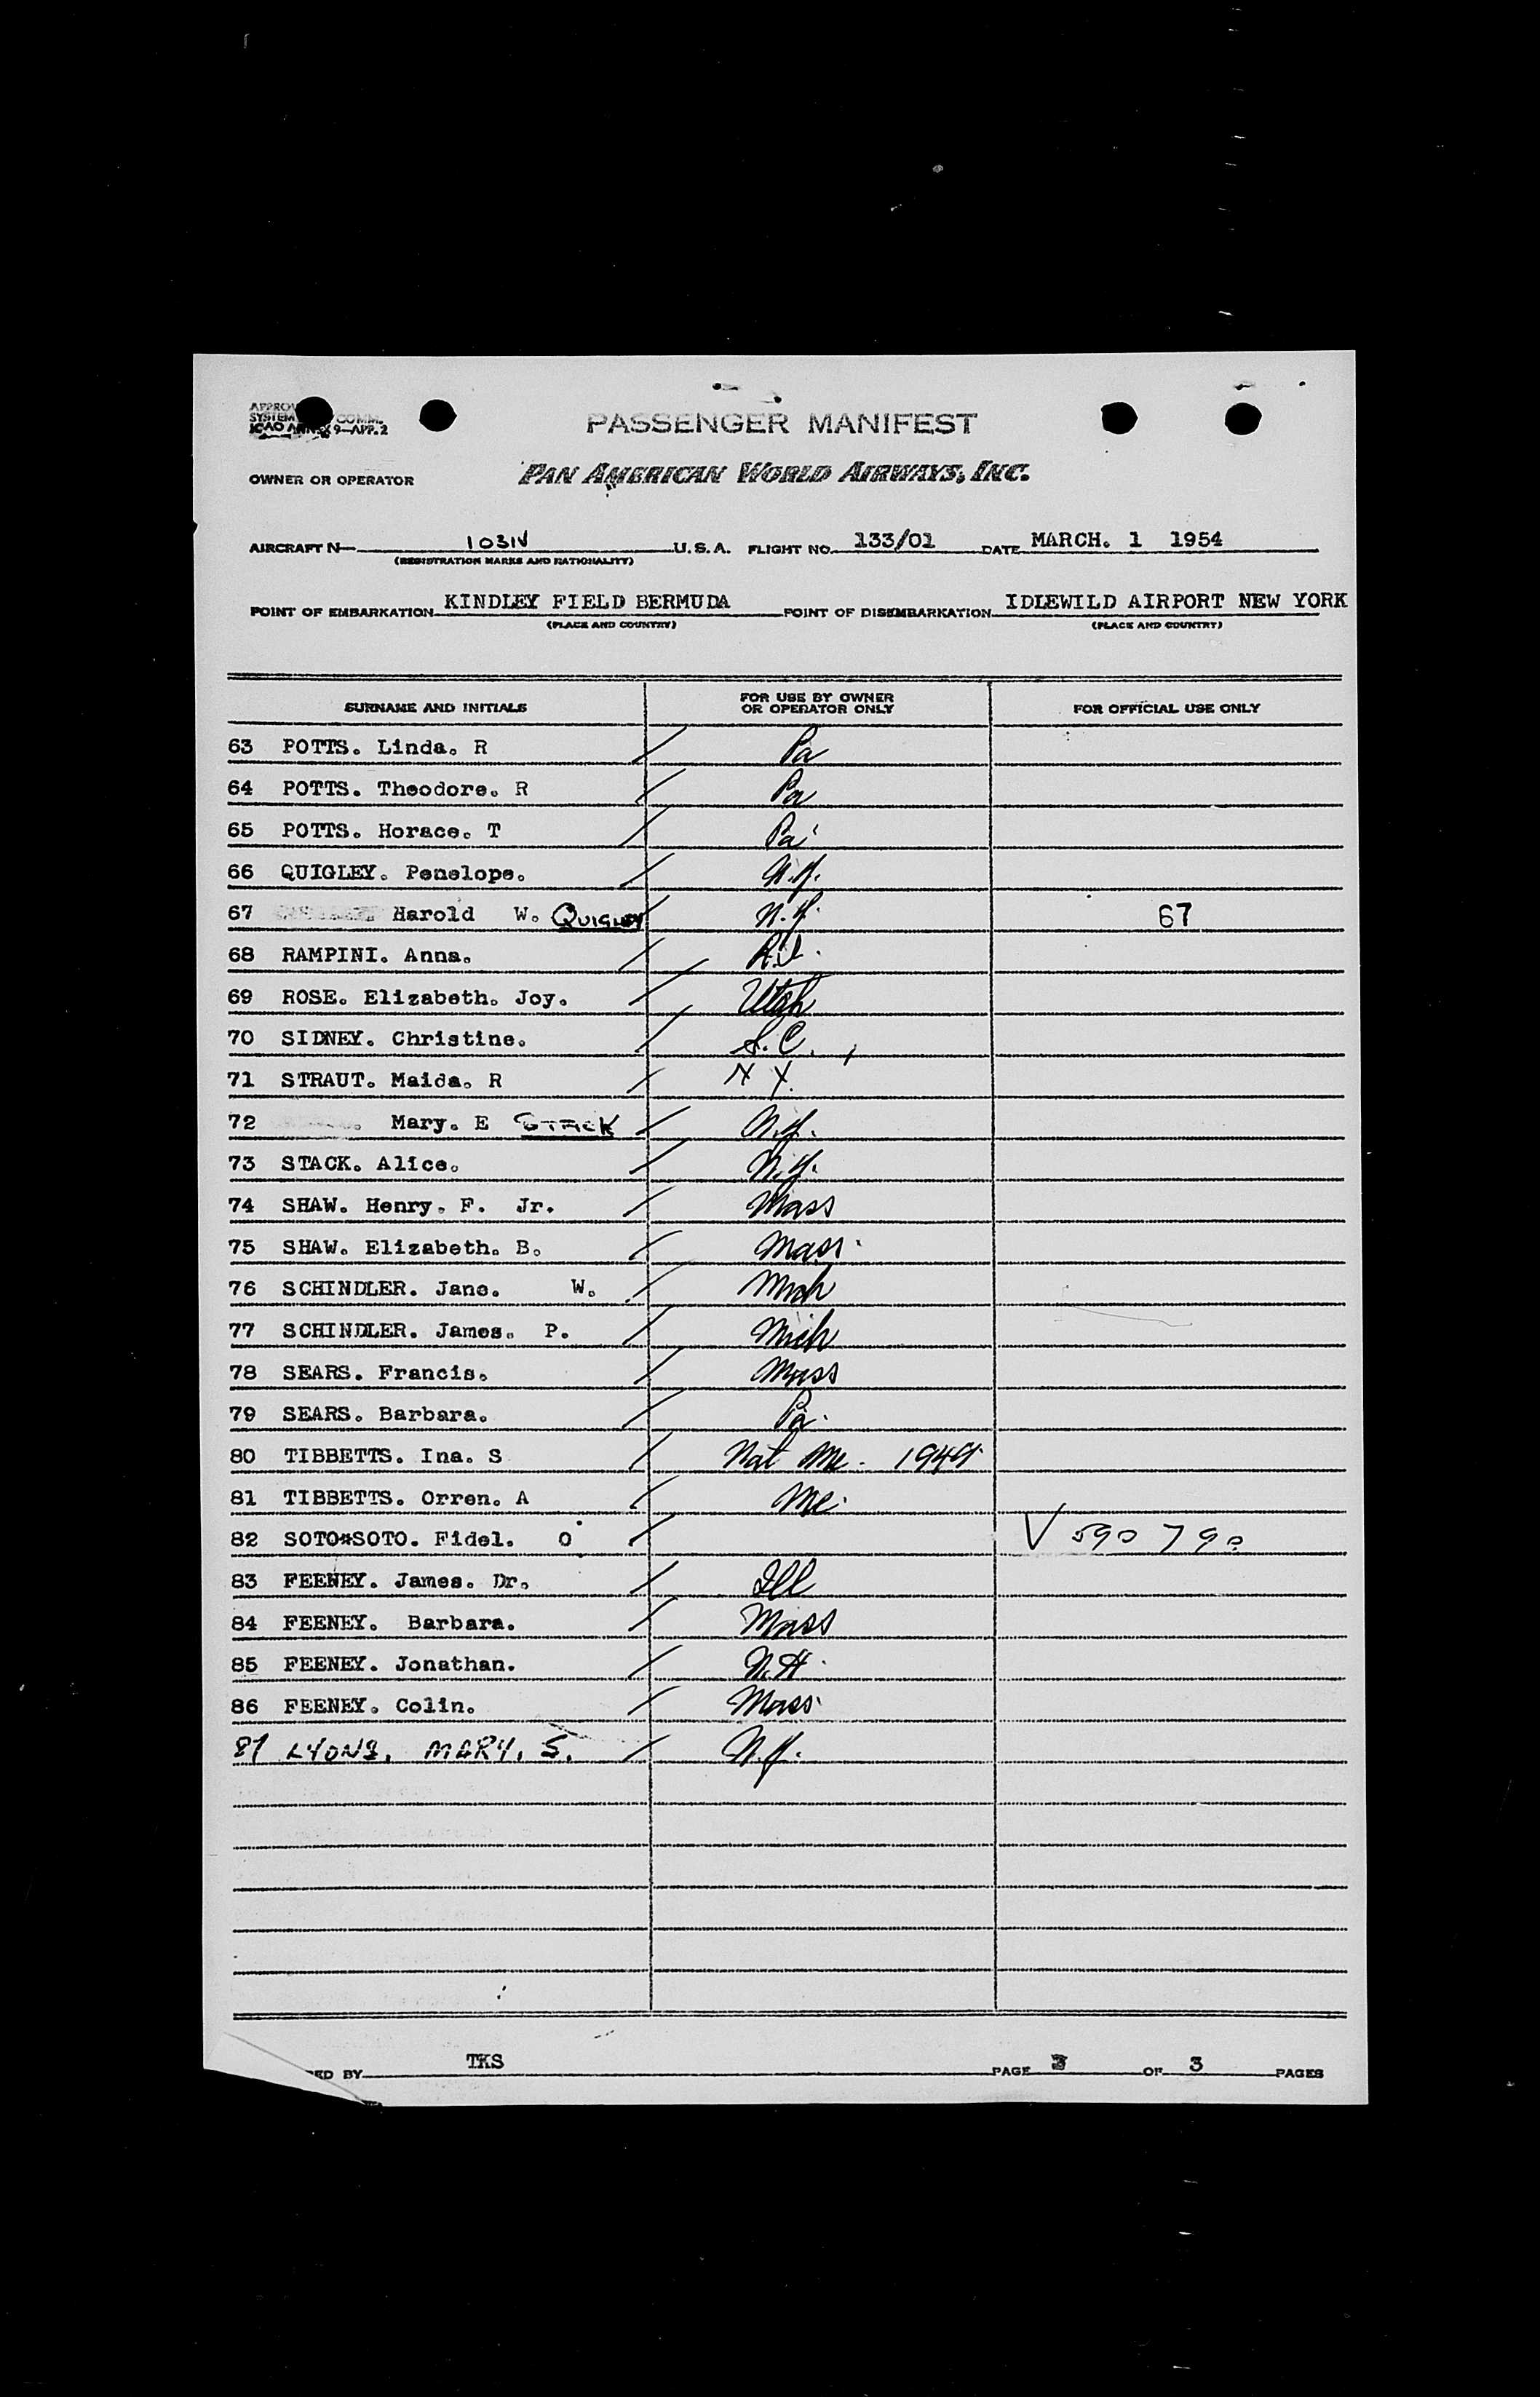 PASSENGER MANIFEST
OWNER OR OPERATOR PAN AMERICAN WORLD AIRWAYS, INC.
AIRCRAFT N— 1031V U.S.A. FLIGHT NO. 133/01 DATE MARCH. 1 1954
(REGISTRATION MARKS AND NATIONALITY)
POINT OF EMBARKATION KINDLEY FIELD BERMUDA POINT OF DISEMBARKATION IDLEWILD AIRPORT NEW YORK
(PLACE AND COUNTRY) (PLACE AND COUNTRY)
SURNAME AND INITIALS FOR USE BY OWNER OR OPERATOR ONLY FOR OFFICIAL USE ONLY
63 POTTS. Linda. R / Pa
64 POTTS. Theodore. R / Pa
65 POTTS. Horace. T / Pa
66 QUIGLEY. Penelope. / N.Y.
67 Harold W. QUIGLEY / N.Y. 67
68 RAMPINI. Anna. / R.I.
69 ROSE. Elizabeth. Joy. / Utah
70 SIDNEY. Christine. / S.C.
71 STRAUT. Maida. R / N Y.
72 Mary. E STACK / N.Y.
73 STACK. Alice. / N.Y.
74 SHAW. Henry. F. Jr. / Mass
75 SHAW. Elizabeth. B. / Mass.
76 SCHINDLER. Jane. W. / Mich
77 SCHINDLER. James. P. / Mich
78 SEARS. Francis. / Mass
79 SEARS. Barbara. / Pa.
80 TIBBETTS. Ina. S / Nat Me. 1949
81 TIBBETTS. Orren. A / Me.
82 SOTO*SOTO. Fidel. O / V 590 790
83 FEENEY. James. Dr. / Ill
84 FEENEY. Barbara. / Mass
85 FEENEY. Jonathan. / N.H.
86 FEENEY. Colin. / Mass
87 LYONS, MARY, S. / N.Y.
BY TKS PAGE 3 OF 3 PAGES